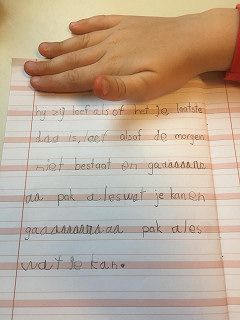 hij zij leef alsof het je laatste
dag is, leef alsof de morgen
niet bestaat en gaaaaaaaa
aa pak alles wat je kan en
gaaaaaaaaaaa pak ales
wat je kan.